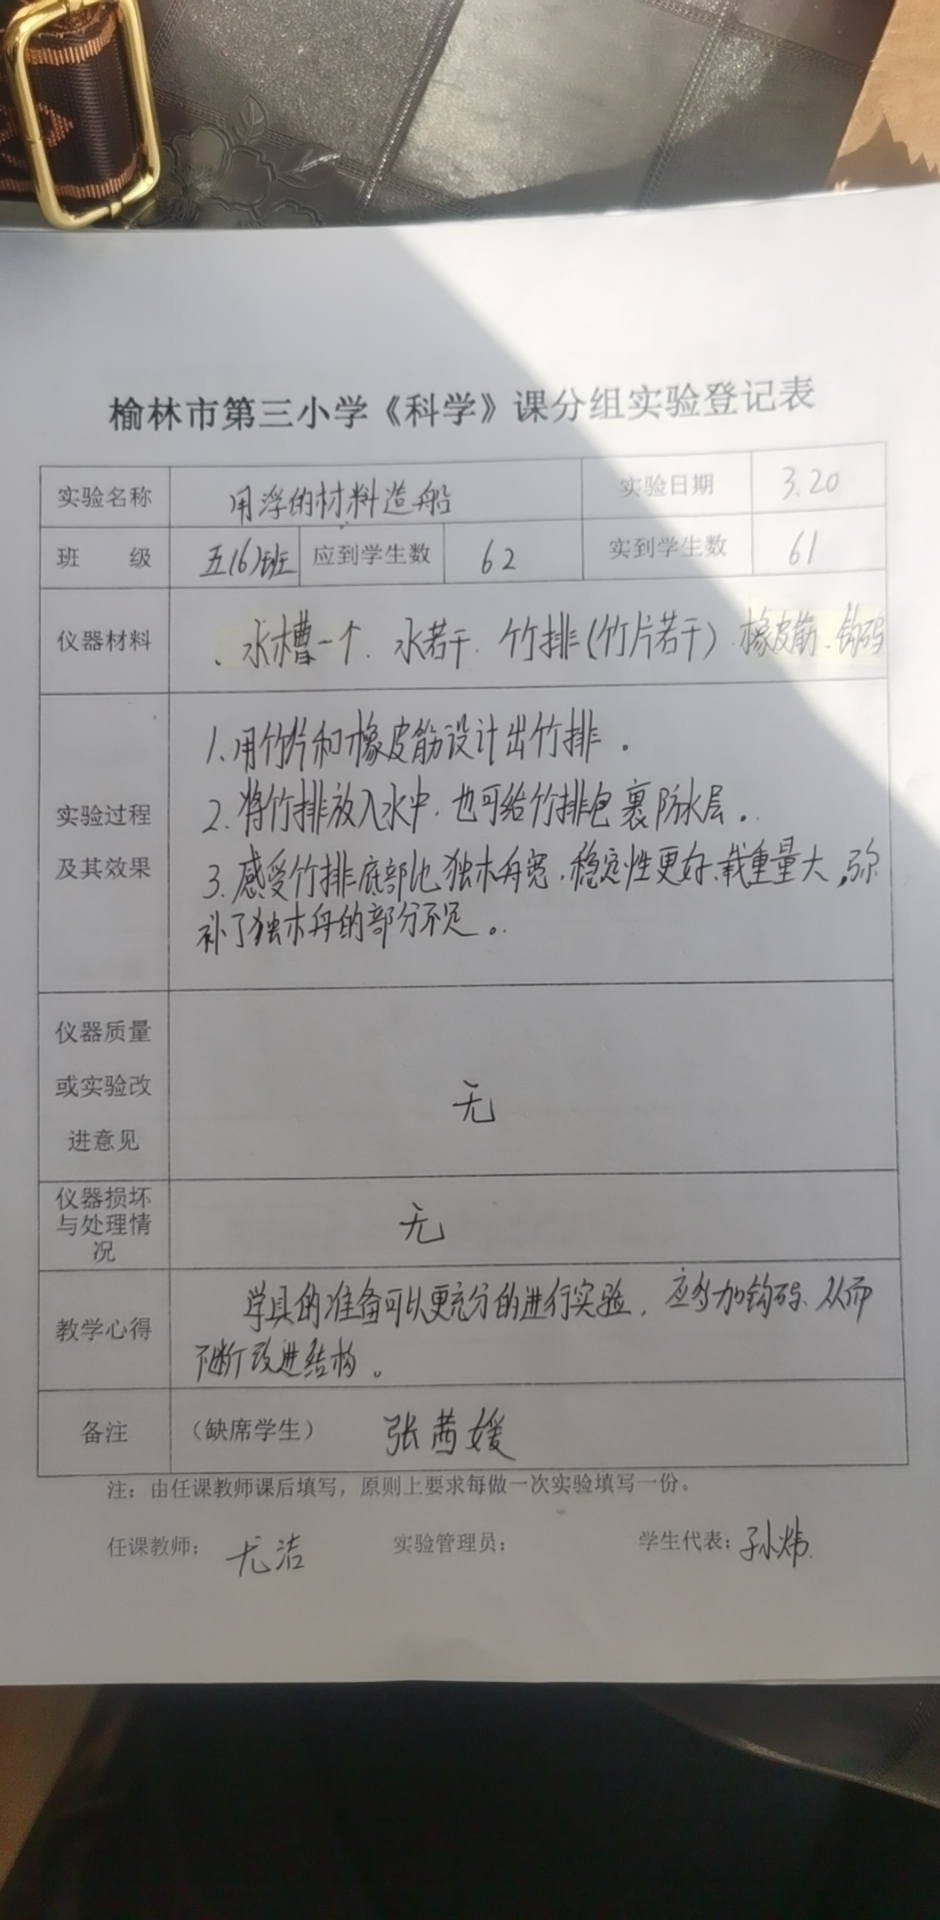 榆林市第三小学《科学》课分组实验登记表
实验名称 用浮的材料造船 实验日期 3.20
班 级 五(6)班 应到学生数 62 实到学生数 61
仪器材料 、水槽一个、水若干、竹排(竹片若干)、橡皮筋、钩码
实验过程
及其效果
1.用竹片和橡皮筋设计出竹排。
2.将竹排放入水中,也可给竹排包裹防水层。
3.感受竹排底部比独木舟宽,稳定性更好、载重量大,弥
补了独木舟的部分不足。
仪器质量
或实验改
进意见
无
仪器损坏
与处理情
况
无
教学心得
学具的准备可以更充分的进行实验,应多加钩码、从而
不断改进结构。
备注 (缺席学生) 张茜媛
注:由任课教师课后填写,原则上要求每做一次实验填写一份。
任课教师: 尤洁 实验管理员: 学生代表: 孙炜